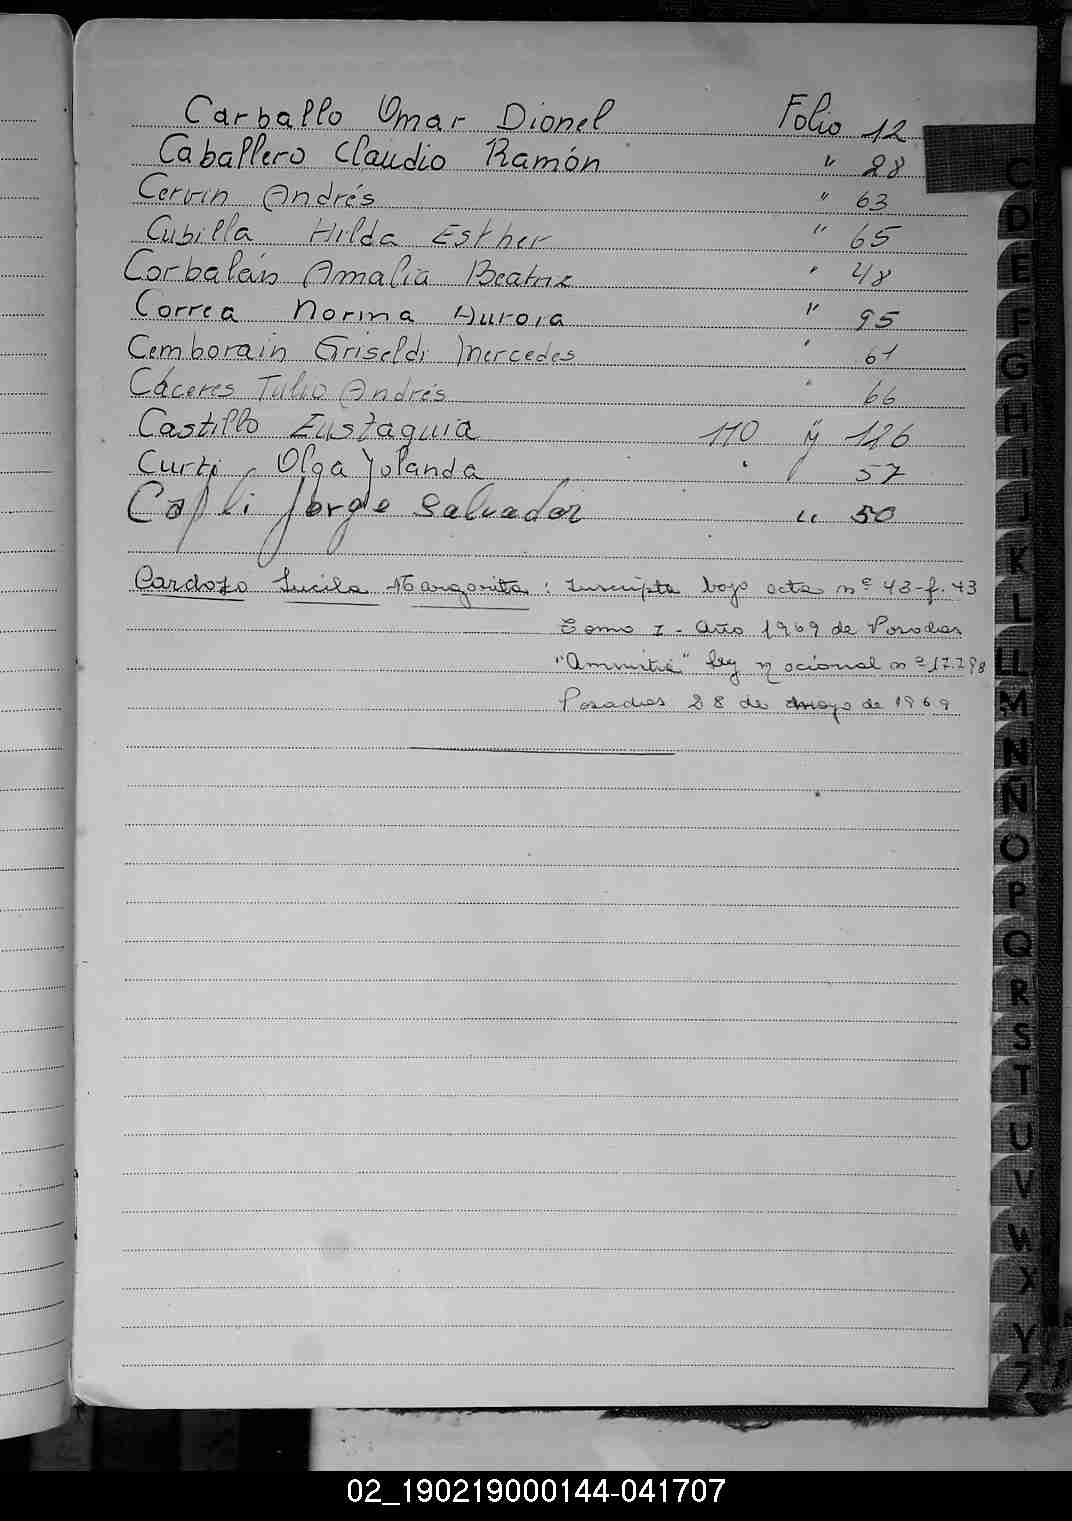 Carballo Omar Dionel Folio 12
Caballero Claudio Ramón " 28
Cervin Andrés " 63
Cubilla Hilda Esther " 65
Corbalán Amalia Beatriz " 48
Correa Norma Aurora " 95
Cemborain Griseldi Mercedes " 61
Cáceres Tulio Andrés " 66
Castillo Eustaquia 110 y 126
Curti Olga Yolanda " 57
Capli Jorge Salvador " 50
Cardozo Lucila Margarita: Inscripta bajo acta nº 43-f. 43
Tomo I - Año 1969 de Posadas
"Amnistía" Ley Nacional nº 17.798
Posadas 28 de mayo de 1969
C
D
E
F
G
H
I
J
K
L
LL
M
N
Ñ
O
P
Q
R
S
T
U
V
W
X
Y
Z
02_190219000144-041707